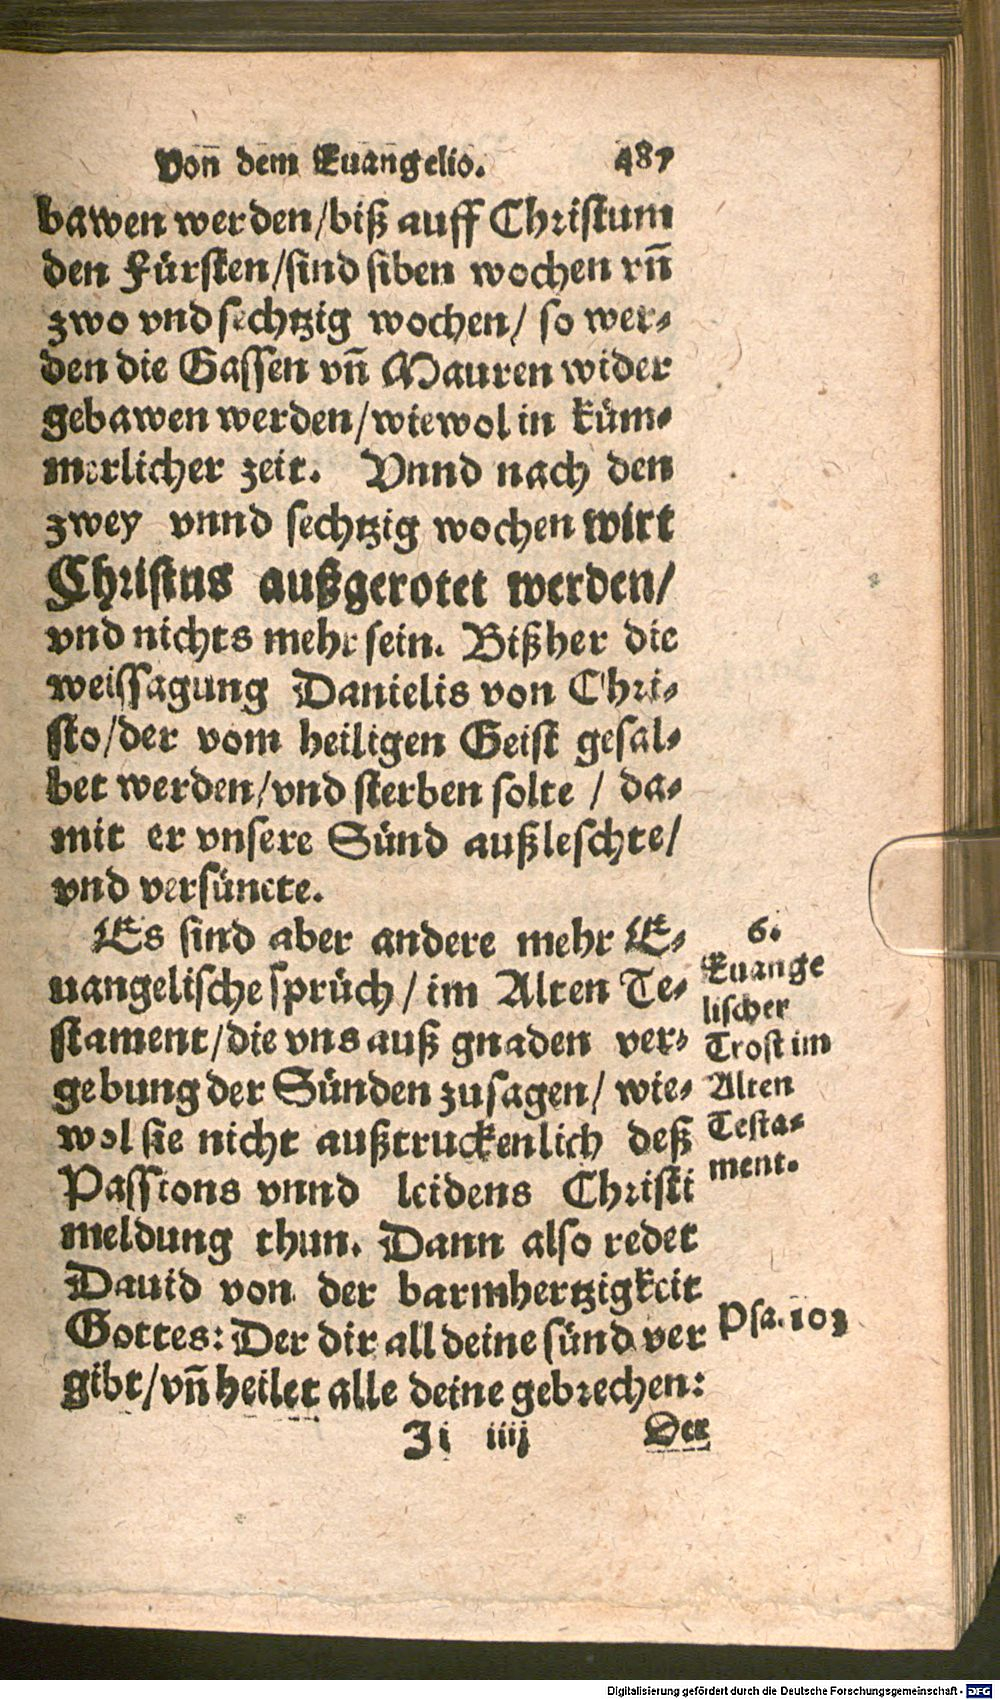 Von dem Euangelio. 487
bawen werden/biß auff Christum
den Fürsten/sind siben wochen vñ
zwo vnd sechtzig wochen/ so wer-
den die Gassen vñ Mauren wider
gebawen werden/wiewol in küm-
merlicher zeit. Vnnd nach den
zwey vnnd sechtzig wochen wirt
Christus außgerotet werden/
vnd nichts mehr sein. Bißher die
weissagung Danielis von Chri-
sto/der vom heiligen Geist gesal-
bet werden/vnd sterben solte / da-
mit er vnsere Sünd außleschte/
vnd versüncte.
Es sind aber andere mehr E-
uangelische sprüch/ im Alten Te-
stament/die vns auß gnaden ver-
gebung der Sünden zusagen/ wie-
wol sie nicht außtruckenlich deß
Passions vnnd leidens Christi
meldung thun. Dann also redet
Dauid von der barmhertzigkeit
Gottes: Der dir all deine sünd ver
gibt/vñ heilet alle deine gebrechen:
Ji iiij Der
6.
Euange
lischer
Trost im
Alten
Testa-
ment.
Psa. 103
Digitalisierung gefördert durch die Deutsche Forschungsgemeinschaft - DFG